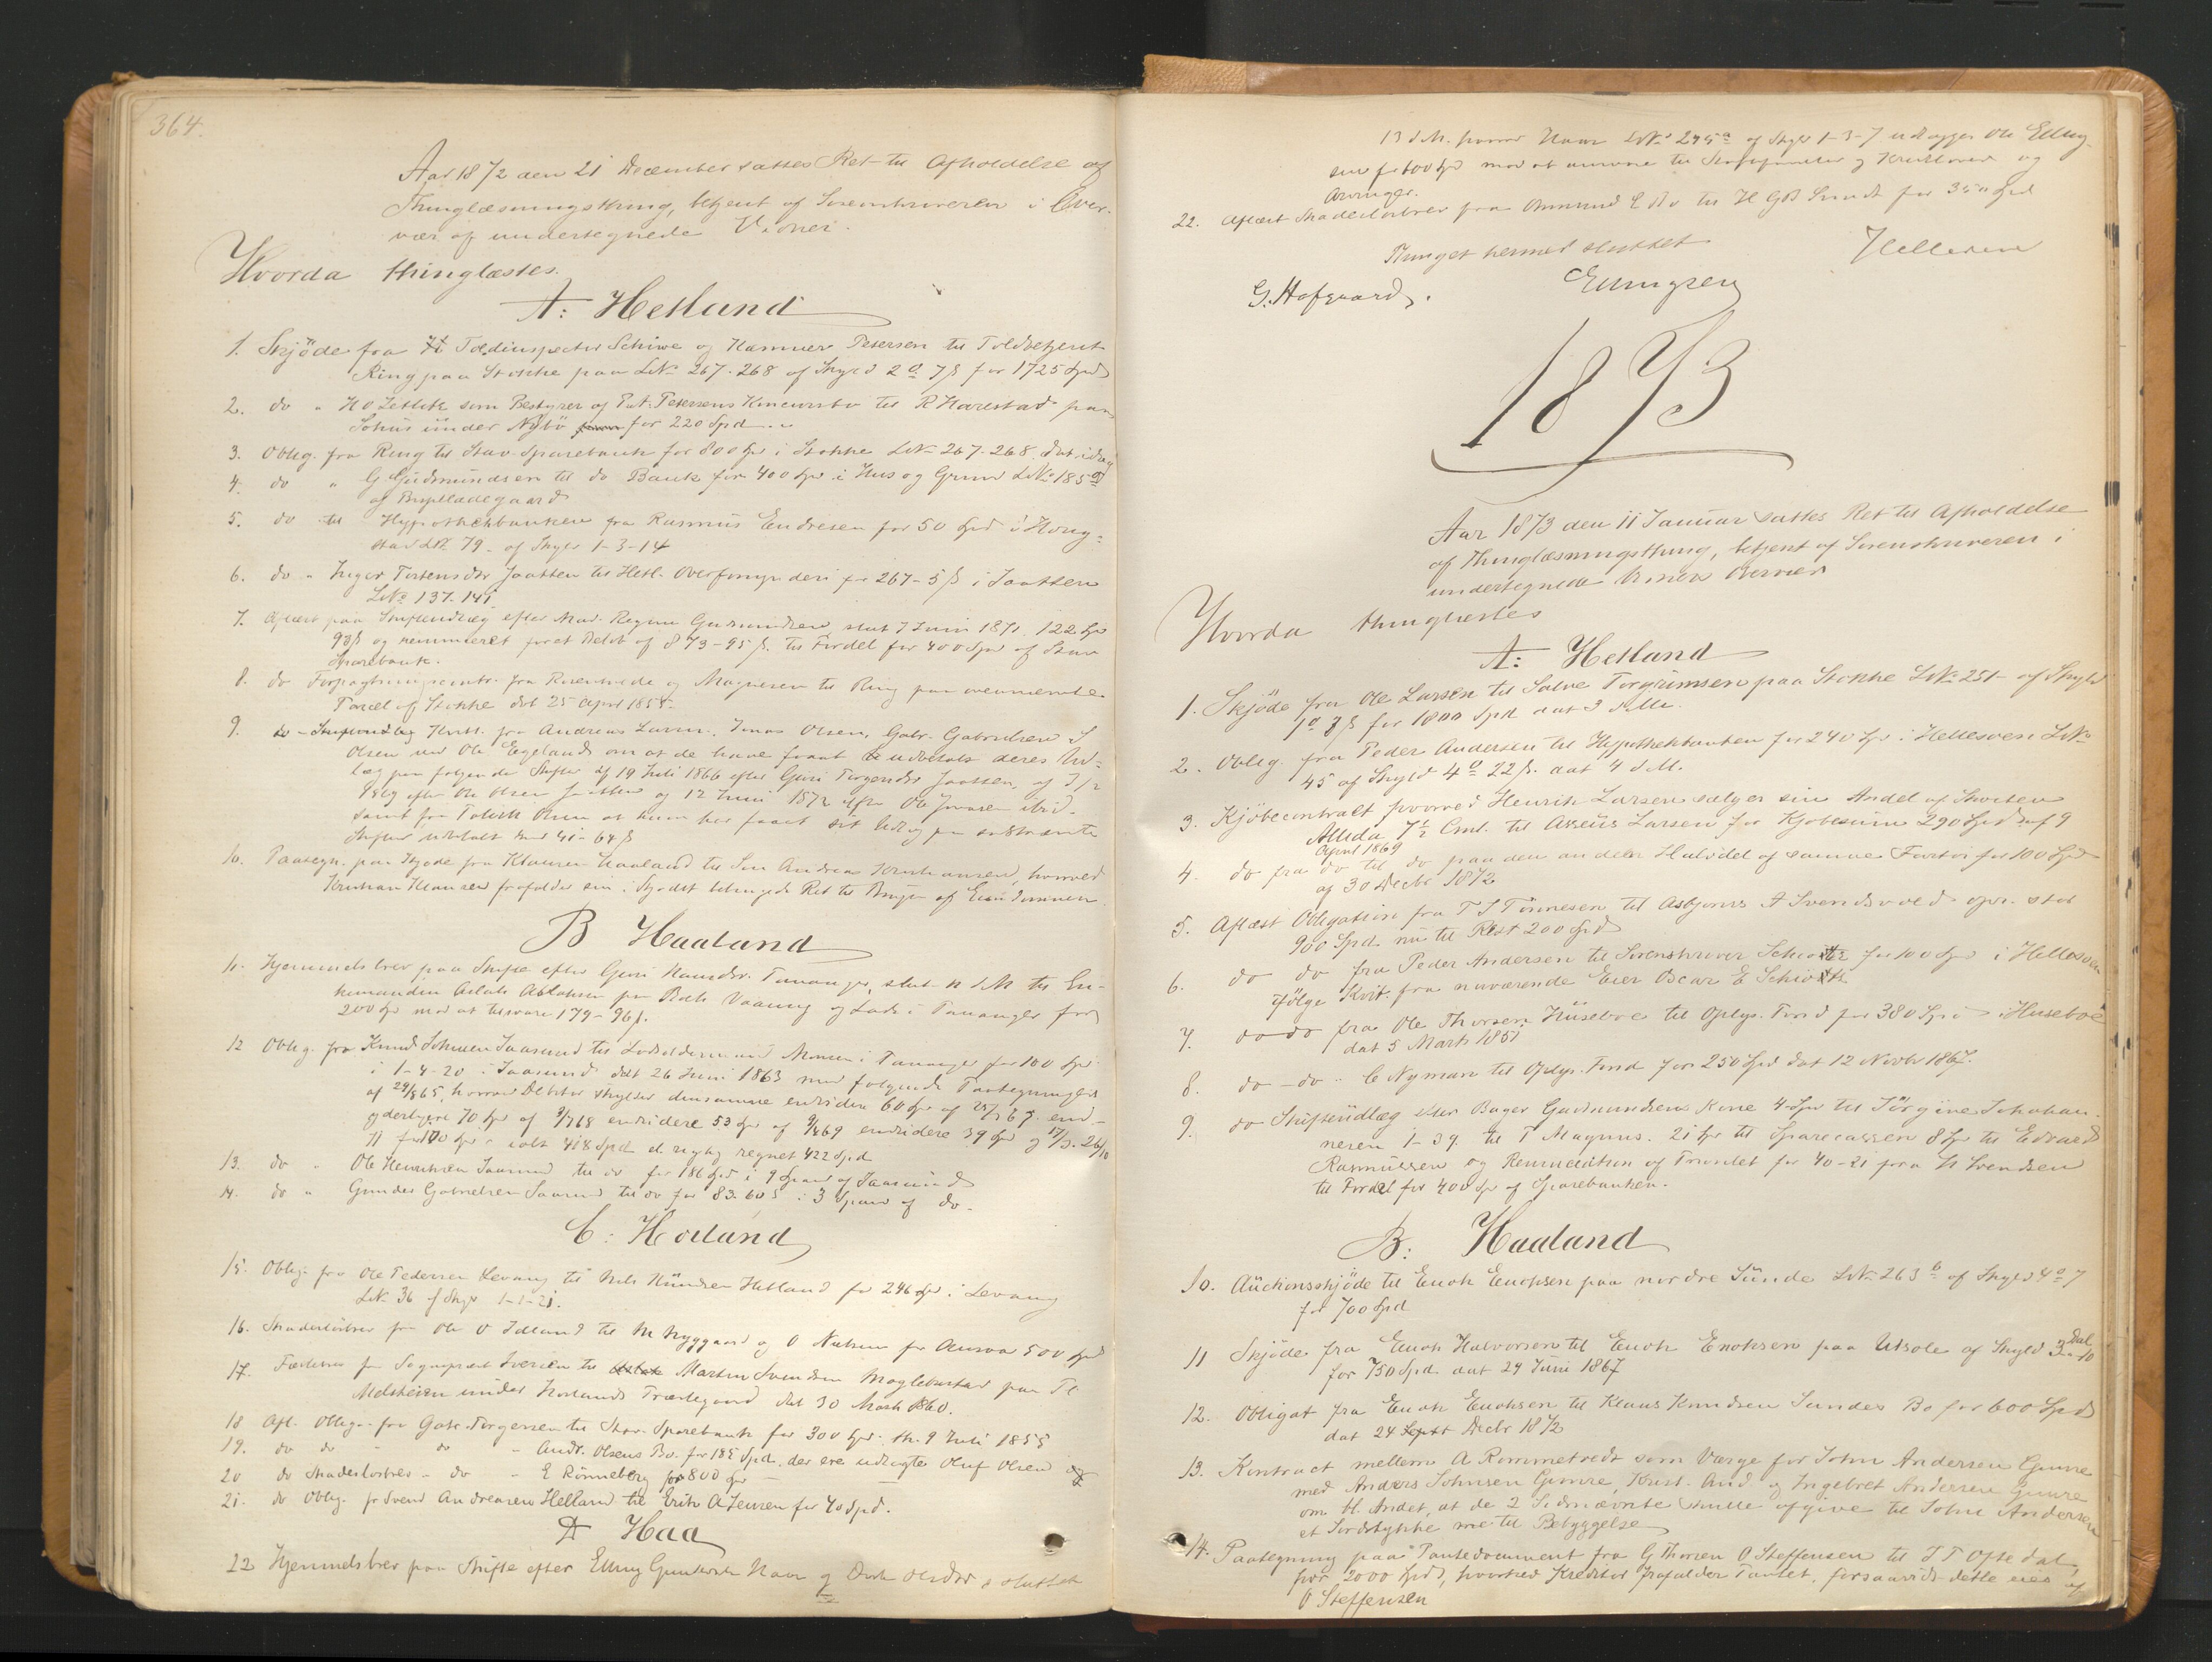 364.
Aar 1872 den 21 December sattes Ret til Afholdelse af
Thinglæsningsthing, betjent af Sorenskriveren i Over-
vær af undertegnede Vidner.
Hvorda thinglæstes.
A: Hetland
1. Skjöde fra Toldinspecteur Schiwe og Kæmner Petersen til Toldbetjent
Ring paa Stokke paa LNo 267. 268 af Skyld 2 7 ß for 1725 Spd
2. do " H O Zetlitz som Bestyrer af Petersens Concursbo til R Harestad paa
Sohus under Nybö for 220 Spd
3. Oblig. fra Ring til Stav. Sparebank for 800 Spd i Stokke LNo 267. 268, dat idag
4. do " G Gudmundsen til do Bank for 400 Spd i Hus og Grund LNo 185
af
5. do til Hypothekbanken fra Rasmus Endresen for 50 Spd i Houg-
stad LNo 79 af Skyld 1-3-14
6. do " Inger Tostensdtr Jaatten til Hetl. Overformynderi for 267-5 ß i Jaatten
LNo 137. 141
7. Aflæst paa Skifteudlæg efter Mad. Regine Gudmundsen, slut 7 Juni 1871, 122 Spd
98 ß og renunceret for et Beløb af 873-95 ß. til Fordel for 400 Spd af Stav
Sparebank.
8. do Forpagtningscontr. fra Rosenkilde og Magnesen til Ring paa ovennævnte
Parcel af Stokke dat 25 April 1855
9. do Skifteudlæg Kvitt. fra Andreas Larsen, Jonas Olsen, Gabr. Gabrielsen S
Olsen ved Ole Egeland om at de have faaet udbetalt deres Ud-
læg paa følgende Skifter af 19 Juli 1866 efter Guri Torgersdtr Jaatten, af
efter Ole Olsen Jaatten og 12 Juni 1872 efter Ole Jonasen ibid.
samt fra Tollak Olsen at han har faaet sit Udlæg paa sidstnævnte
Skifte udbetalt med 41-64 ß
10. Paategn. paa Skjøde fra Klausen Haaland til Søn Andreas Kristiansen, hvorved
Kristian Klausen frafalder sin i Skjødet betingede Ret til Brugen af Eiendommen
B Haaland
11. Hjemmelsbrev paa Skifte efter Guri Hansdtr. Tananger, slut d M til En-
kemanden Aslak Aslaksen paa Vaaning og Lade i Tananger for
200 Spd mod at tilsvare 179-96 ß.
12 Oblig. fra Knud Johnsen Jaasund til Lodsoldermand Monsen i Tananger for 100 Spd
i 1-4-20 i Jaasund dat 26 Juni 1863 med følgende Paategninger
af 29/8 65, hvorved Debitor skylder densamme endvidere 60 Spd af 67 end-
yderligere 70 Spd af 68 endvidere 53 Spd af 69 endvidere 39 Spd og
71 for 100 Spd ialt 418 Spd el rigtig regnet 422 Spd
13. do " Ole Henriksen Jaasund til do for 186 Spd i 9 Spand af Jaasund
14. do " Gunder Gabrielsen Jaasund til do for 83. 60 ß i 3 Spand af do.
C: Hoiland
15. Oblig. fra Ole Pedersen Levang til Nils Knudsen Hetland for 246 Spd i Levang
LNo 36 af Skyld 1-1-21.
16. Skadesløsbrev fra Ole O Idland til M Nyggaard og O Nielsen for Ansvar 500 Spd
17. Fæstebrev fra Sogneprest Iversen til Martin Svendsen Moglebustad paa Pl
Melsheien under Hoilands Præstegaard dat 30 Marts 1860.
18 Afl. Oblig. fra Gabr. Torgersen til Stav. Sparebank for 300 Spd, th. 9 Juli 1855
19. do do - do - Andr. Olsens Bo. for 185 Spd. der ere udlagte Oluf Olsen
20 do Skadesløsbrev - do - E Rönneberg for 800 Spd
21. do Oblig. fr Svend Andreasen Helland til Erik A Jensen for 40 Spd.
D Haa
22 Hjemmelsbrev paa Skifte efter Elling Haar og sluttet
13 d M. hvorved Haar LNo 245 a af Skyld 1-3-7 udlægges Ole Elling-
sen for 600 Spd mod at ansvare til og Kreditorer og
Arvinger.
22. Aflæst Skadesløsbrev fra til H G B Sundt for 350 Spd
Thinget hermed sluttet
Hellesen
G. Hofgaard.
Ellingsen
1873
Aar 1873 den 11 Januar sattes Ret til Afholdelse
af Thinglæsningsthing, betjent af Sorenskriveren i
undertegnede Vidners Overvær
Hvorda thinglæstes
A: Hetland
1. Skjøde fra Ole Larsen til Salve Torgrimsen paa Stokke LNo 251 af Skyld
1 8 ß for 1800 Spd dat 3 d M.
2. Oblig. fra Peder Andersen til Hypothekbanken for 240 Spd i Hellesøen LNo
45 af Skyld 4 22 ß. dat 4 d M.
3. Kjöbecontract hvorved Henrik Larsen sælger sin Andel af Skoiten
Alida 7½ Cml. til Asseus Larsen for Kjøbesum 290 Spd af 9
April 1869
4. do fra do til do paa den anden Halvdel af samme Fartöi for 100 Spd
af 30 Decbr 1872
5. Aflæst Obligation fra T S Tönnesen til Asbjørns A Svendsvold opr. stor
900 Spd. nu til Rest 200 Spd
6. do do fra Peder Andersen til Sorenskriver Schiøtz for 100 Spd i Hellesøen
ifölge Kvit. fra nuværende Eier Oscar E Schiøtz
7. do do fra Ole Thorsen Huseboe til Oplys. Fond for 380 Spd i Huseboe
dat 5 Marts 1851
8. do - do - C Nyman til Oplys. Fond for 250 Spd dat 12 Novbr 1867.
9. do Skifteudlæg efter Bager Gudmundsens Kone 4 Spd til Jörgine Johahan-
nesen 1-39. til T Magnus. 21 Spd til Sparecassen 8 Spd til Edvard
Rasmussen og Renunciation af Trunlet for 40-21 fra H Svendsen
til Fordel for 400 Spd af Sparebanken.
B: Haaland
10. Auctionsskjöde til Enok Enoksen paa nordre Sunde LNo 263 b af Skyld 4 7
for 700 Spd
11 Skjöde fra Enok Halvorsen til Enok Enoksen paa Utsole af Skyld 3 Dal. 10
for 750 Spd. dat 24 Juni 1867
12. Obligat fra Enok Enoksen til Klaus Knudsen Sundes Bo for 600 Spd
dat 24 Sept Decbr 1872
13. Kontract mellem A Rommetvedt som Værge for John Andersen Gimre
med Anders Johnsen Gimre, Krist. And. og Ingebret Andersen Gimre
om bl. Andet, at de 2 Sidnævnte skulle afgive til John Andersen
et Jordstykke til Bebyggelse
14. Paategning paa Pantedocument fra G Thorsen O Steffensen til T T Oftedal
for 2000 Spd, hvorved Kreditor frafalder Pantet, forsaavidt dette eies af
O Steffensen